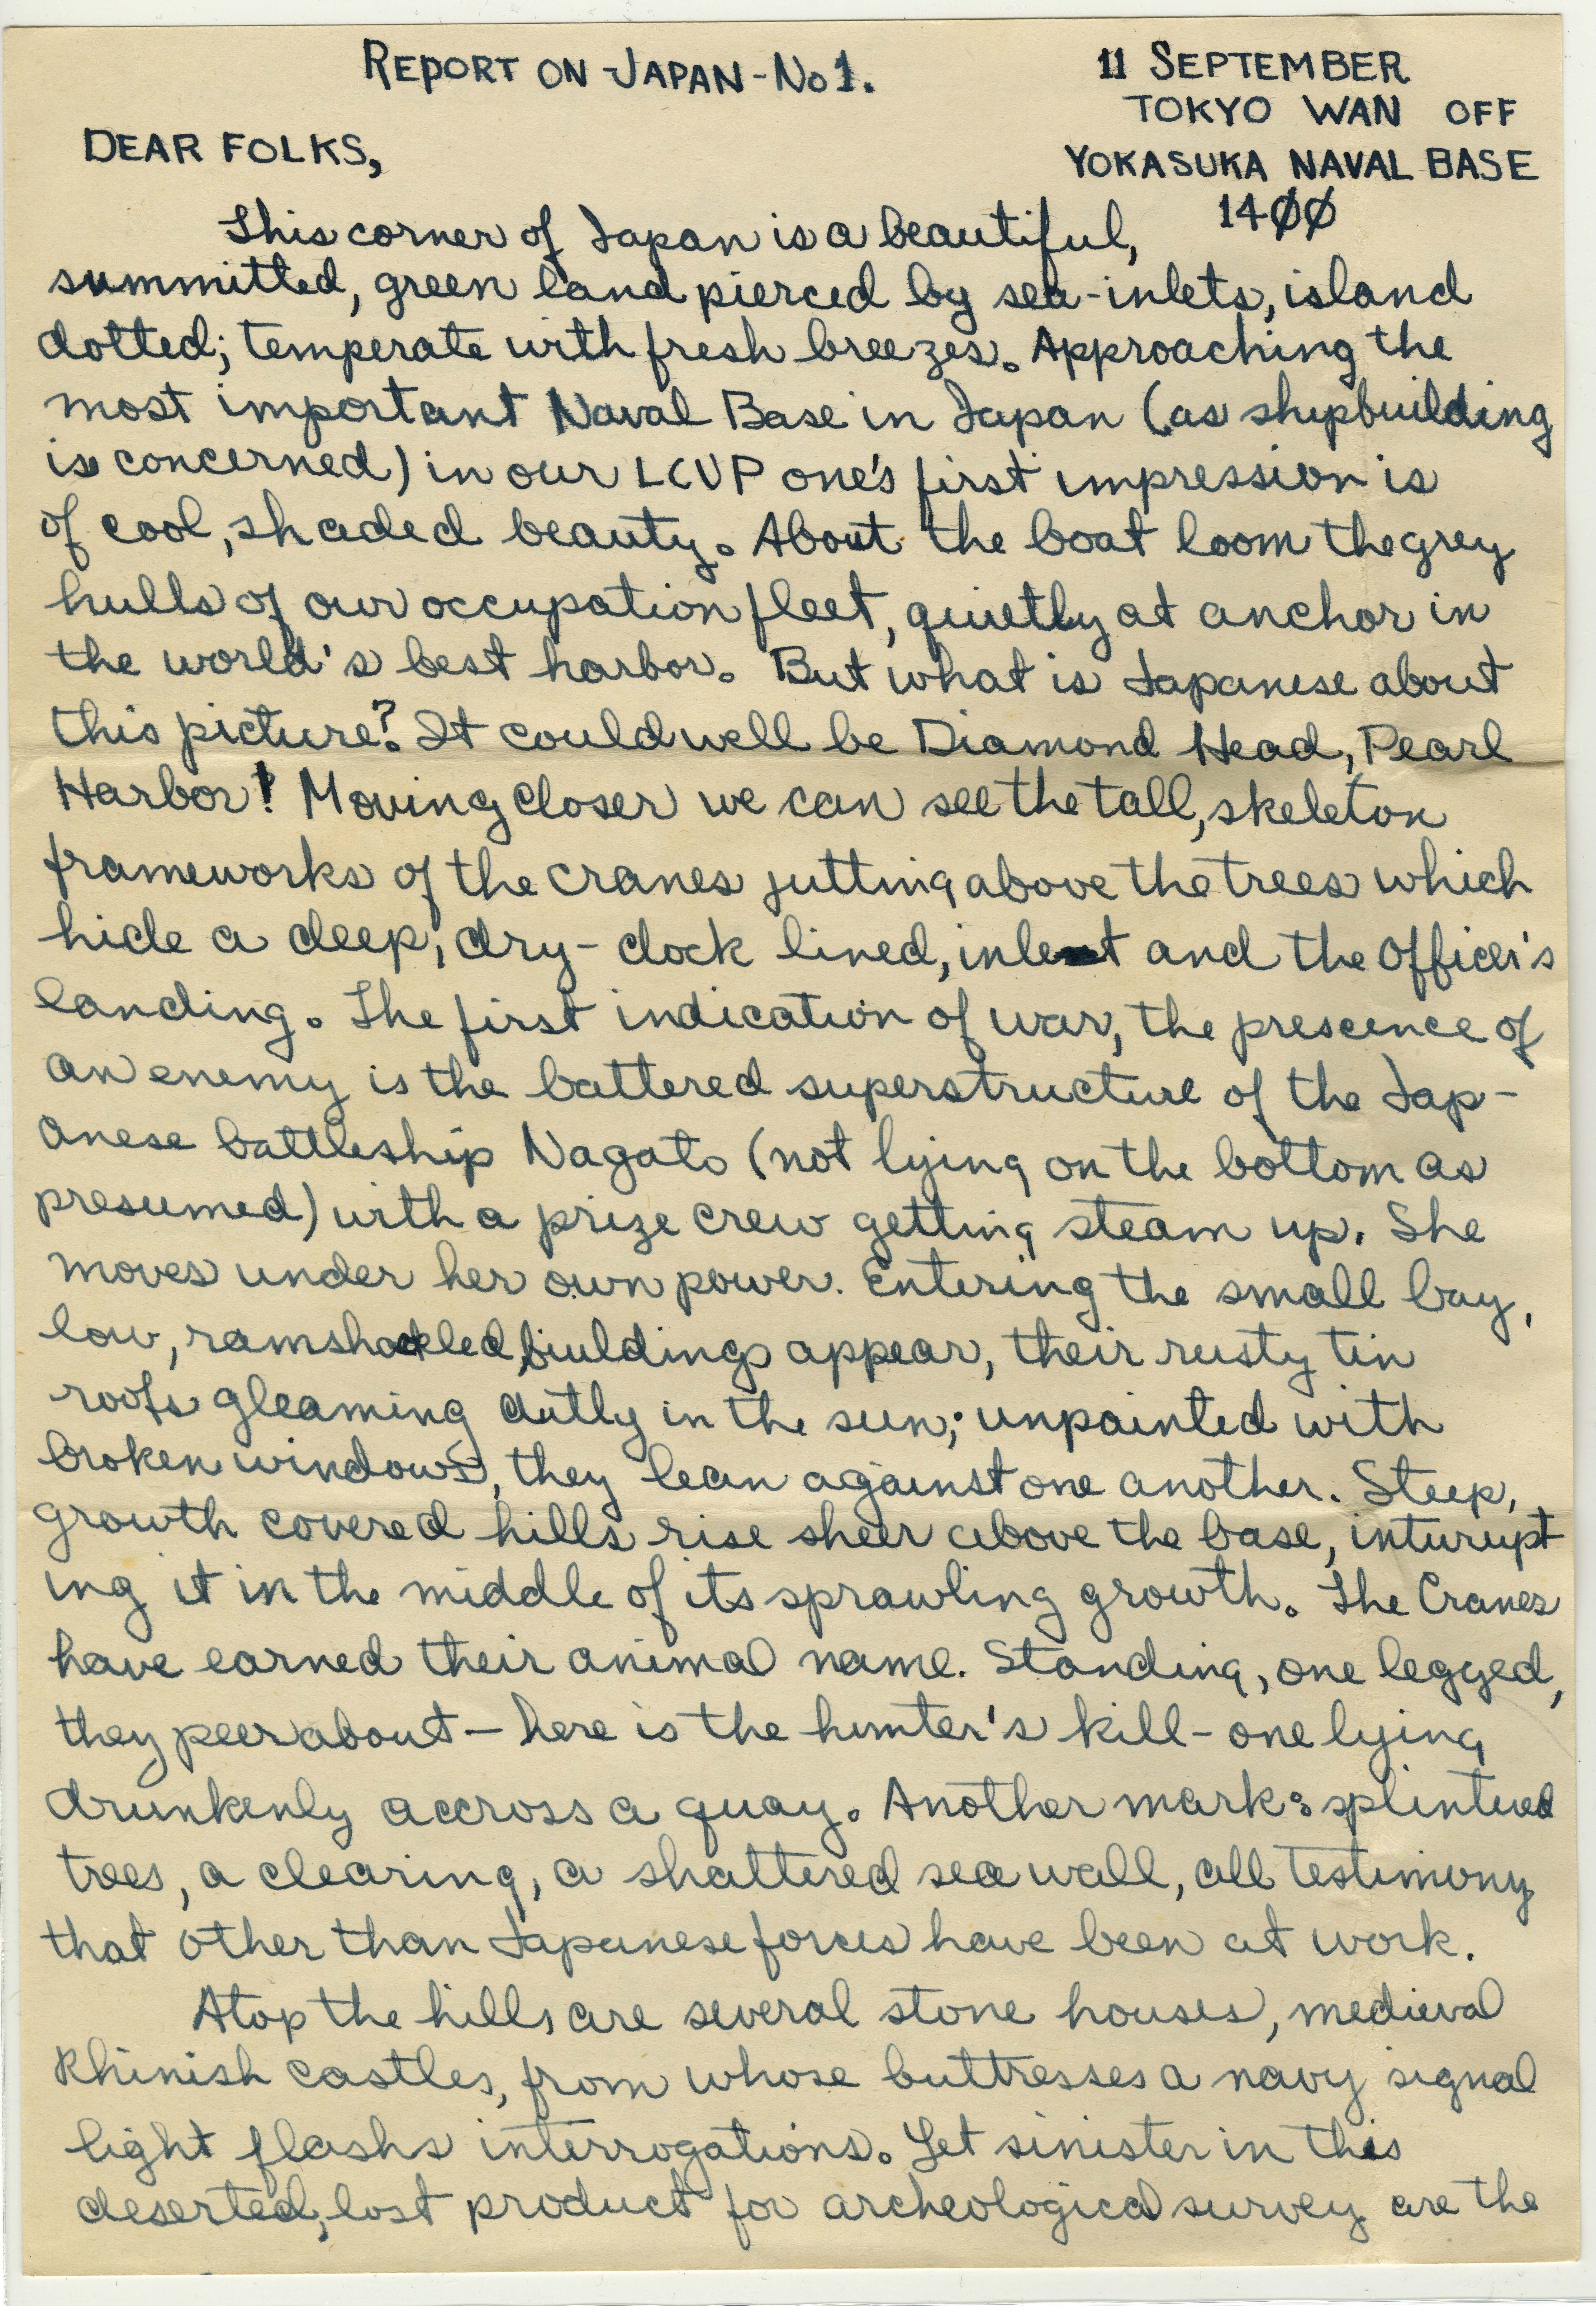 REPORT ON JAPAN - No 1.
11 SEPTEMBER
TOKYO WAN OFF
YOKASUKA NAVAL BASE
14ØØ
DEAR FOLKS,
This corner of Japan is a beautiful,
summitted, green land pierced by sea-inlets, island
dotted; temperate with fresh breezes. Approaching the
most important Naval Base in Japan (as shipbuilding
is concerned) in our LCVP one's first impression is
of cool, shaded beauty. About the boat loom the grey
hulls of our occupation fleet, quietly at anchor in
the world's best harbor. But what is Japanese about
this picture? It could well be Diamond Head, Pearl
Harbor! Moving closer we can see the tall, skeleton
frameworks of the cranes jutting above the trees which
hide a deep, dry-dock lined, inlet and the Officer's
landing. The first indication of war, the prescence of
an enemy is the battered superstructure of the Jap-
anese battleship Nagato (not lying on the bottom as
presumed) with a prize crew getting steam up. She
moves under her own power. Entering the small bay,
low, ramshackled, buildings appear, their rusty tin
roofs gleaming dully in the sun; unpainted with
broken windows, they lean against one another. Steep,
growth covered hills rise sheer above the base, interupt
ing it in the middle of its sprawling growth. The Cranes
have earned their animal name. Standing, one legged,
they peer about — here is the hunter's kill - one lying
drunkenly accross a quay. Another mark: splintered
trees, a clearing, a shattered sea wall, all testimony
that other than Japanese forces have been at work.
Atop the hills are several stone houses, medieval
Rhinish castles, from whose buttresses a navy signal
light flashs interrogations. Yet sinister in this
deserted, lost product for archeological survey are the